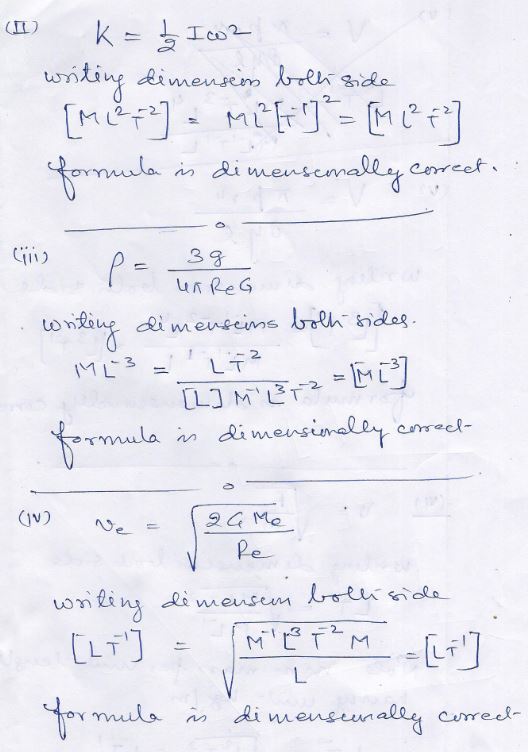 (II) K = ½ Iω²
writing dimension both side
[ML²T⁻²] = ML²[T⁻¹]² = [ML²T⁻²]
formula is dimensionally correct.
(iii) ρ = 3g / 4πReG
writing dimensions both sides.
ML⁻³ = LT⁻² / [L] M⁻¹L³T⁻² = [ML⁻³]
formula is dimensionally correct
(IV) ve = √(2GMe / Re)
writing dimension both side
[LT⁻¹] = √(M⁻¹L³T⁻²M / L) = [LT⁻¹]
formula is dimensionally correct